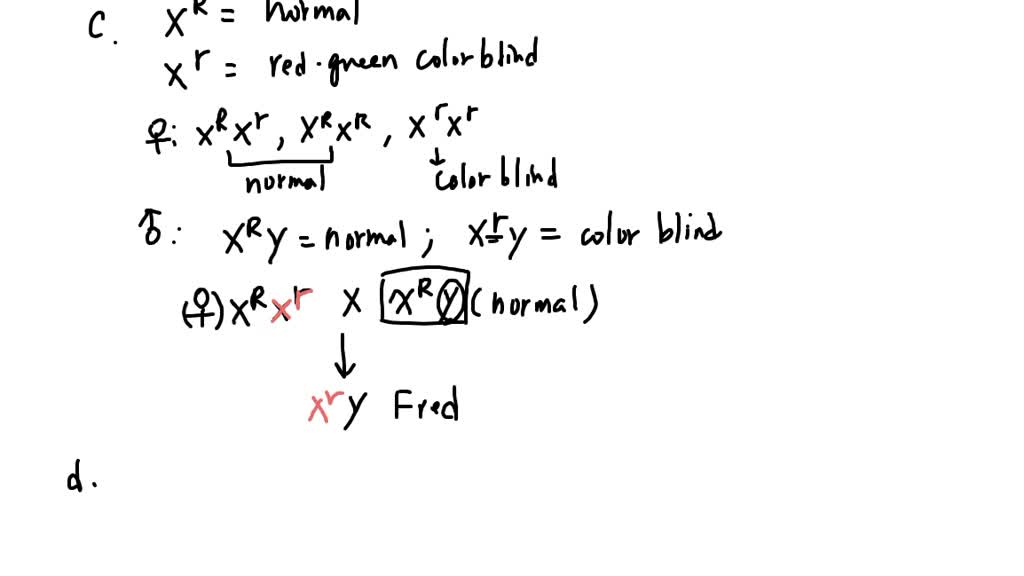 c. X^R = normal
X^r = red-green color blind
♀: X^R X^r, X^R X^R, X^r X^r
normal color blind
♂: X^R Y = normal; X^r Y = color blind
(♀) X^R X^r X X^R Y (normal)
↓
X^r Y Fred
d.